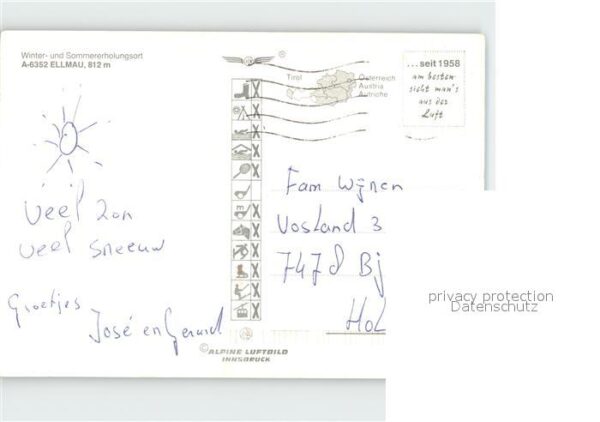 Winter- und Sommererholungsort
A-6352 ELLMAU, 812 m
®
Tirol
Österreich
Austria
Autriche
...seit 1958
am besten
sieht man's
aus der
Luft
Veel Zon
Veel Sneeuw
Groetjes
José en Gerard
Fam Wijnen
Vosland 3
7478 Bj
Hol
© ALPINE LUFTBILD
INNSBRUCK
privacy protection
Datenschutz